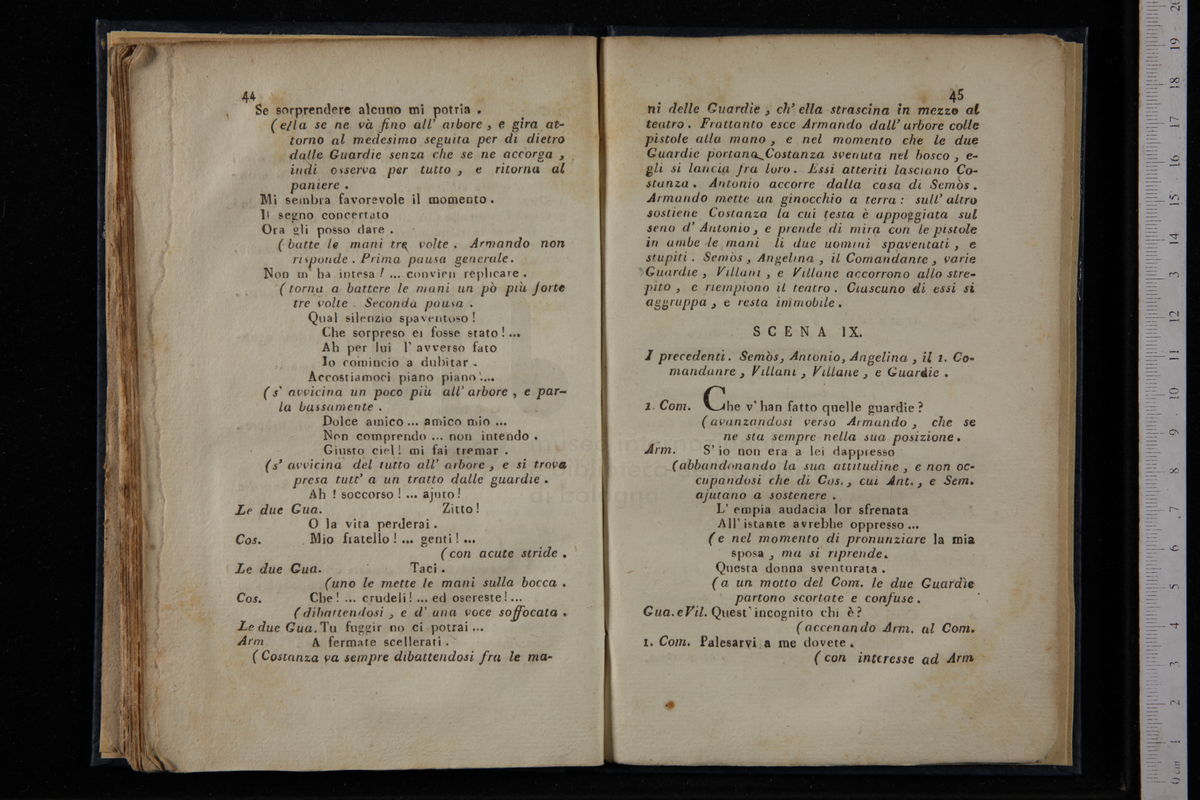 44
Se sorprendere alcuno mi potria .
(ella se ne và fino all' arbore , e gira at-
torno al medesimo seguita per di dietro
dalle Guardie senza che se ne accorga ,
indi osserva per tutto , e ritorna al
paniere .
Mi sembra favorevole il momento .
Il segno concertato
Ora gli posso dare .
(batte le mani tre volte . Armando non
risponde . Prima pausa generale .
Non m' ha intesa ! ... convien replicare .
(torna a battere le mani un pò più forte
tre volte . Seconda pausa .
Qual silenzio spaventoso !
Che sorpreso ei fosse stato ! ...
Ah per lui l' avverso fato
Io comincio a dubitar .
Accostiamoci piano piano ! ...
(s' avvicina un poco più all' arbore , e par-
la bassamente .
Dolce amico ... amico mio ...
Non comprendo ... non intendo .
Giusto ciel ! mi fai tremar .
(s' avvicina del tutto all' arbore , e si trova
presa tutt' a un tratto dalle guardie .
Ah ! soccorso ! ... ajuto !
Le due Gua. Zitto !
O la vita perderai .
Cos. Mio fratello ! ... genti ! ...
(con acute stride .
Le due Gua. Taci .
(uno le mette le mani sulla bocca .
Cos. Che ! ... crudeli ! ... ed osereste ! ...
(dibattendosi , e d' una voce soffocata .
Le due Gua. Tu fuggir no ci potrai ...
Arm A fermate scellerati .
(Costanza va sempre dibattendosi fra le ma-
45
ni delle Guardie , ch' ella strascina in mezzo al
teatro . Frattanto esce Armando dall' arbore colle
pistole alla mano , e nel momento che le due
Guardie portano Costanza svenuta nel bosco , e-
gli si lancia fra loro . Essi atteriti lasciano Co-
stanza . Antonio accorre dalla casa di Semòs .
Armando mette un ginocchio a terra : sull' altro
sostiene Costanza la cui testa è appoggiata sul
seno d' Antonio , e prende di mira con le pistole
in ambe le mani li due uomini spaventati , e
stupiti . Semòs , Angelina , il Comandante , varie
Guardie , Villani , e Villane accorrono allo stre-
pito , e riempiono il teatro . Ciascuno di essi si
aggruppa , e resta immobile .
SCENA IX.
I precedenti . Semòs, Antonio, Angelina , il 1. Co-
mandanre , Villani , Villane , e Guardie .
1. Com. Che v' han fatto quelle guardie ?
(avanzandosi verso Armando , che se
ne sta sempre nella sua posizione .
Arm. S' io non era a lei dappresso
(abbandonando la sua attitudine , e non oc-
cupandosi che di Cos. , cui Ant. , e Sem.
ajutano a sostenere .
L' empia audacia lor sfrenata
All' istante avrebbe oppresso ...
(e nel momento di pronunziare la mia
sposa , ma si riprende.
Questa donna sventurata .
(a un motto del Com. le due Guardie
partono scortate e confuse .
Gua. e Vil. Quest' incognito chi è ?
(accenando Arm. al Com.
1. Com. Palesarvi a me dovete .
(con interesse ad Arm